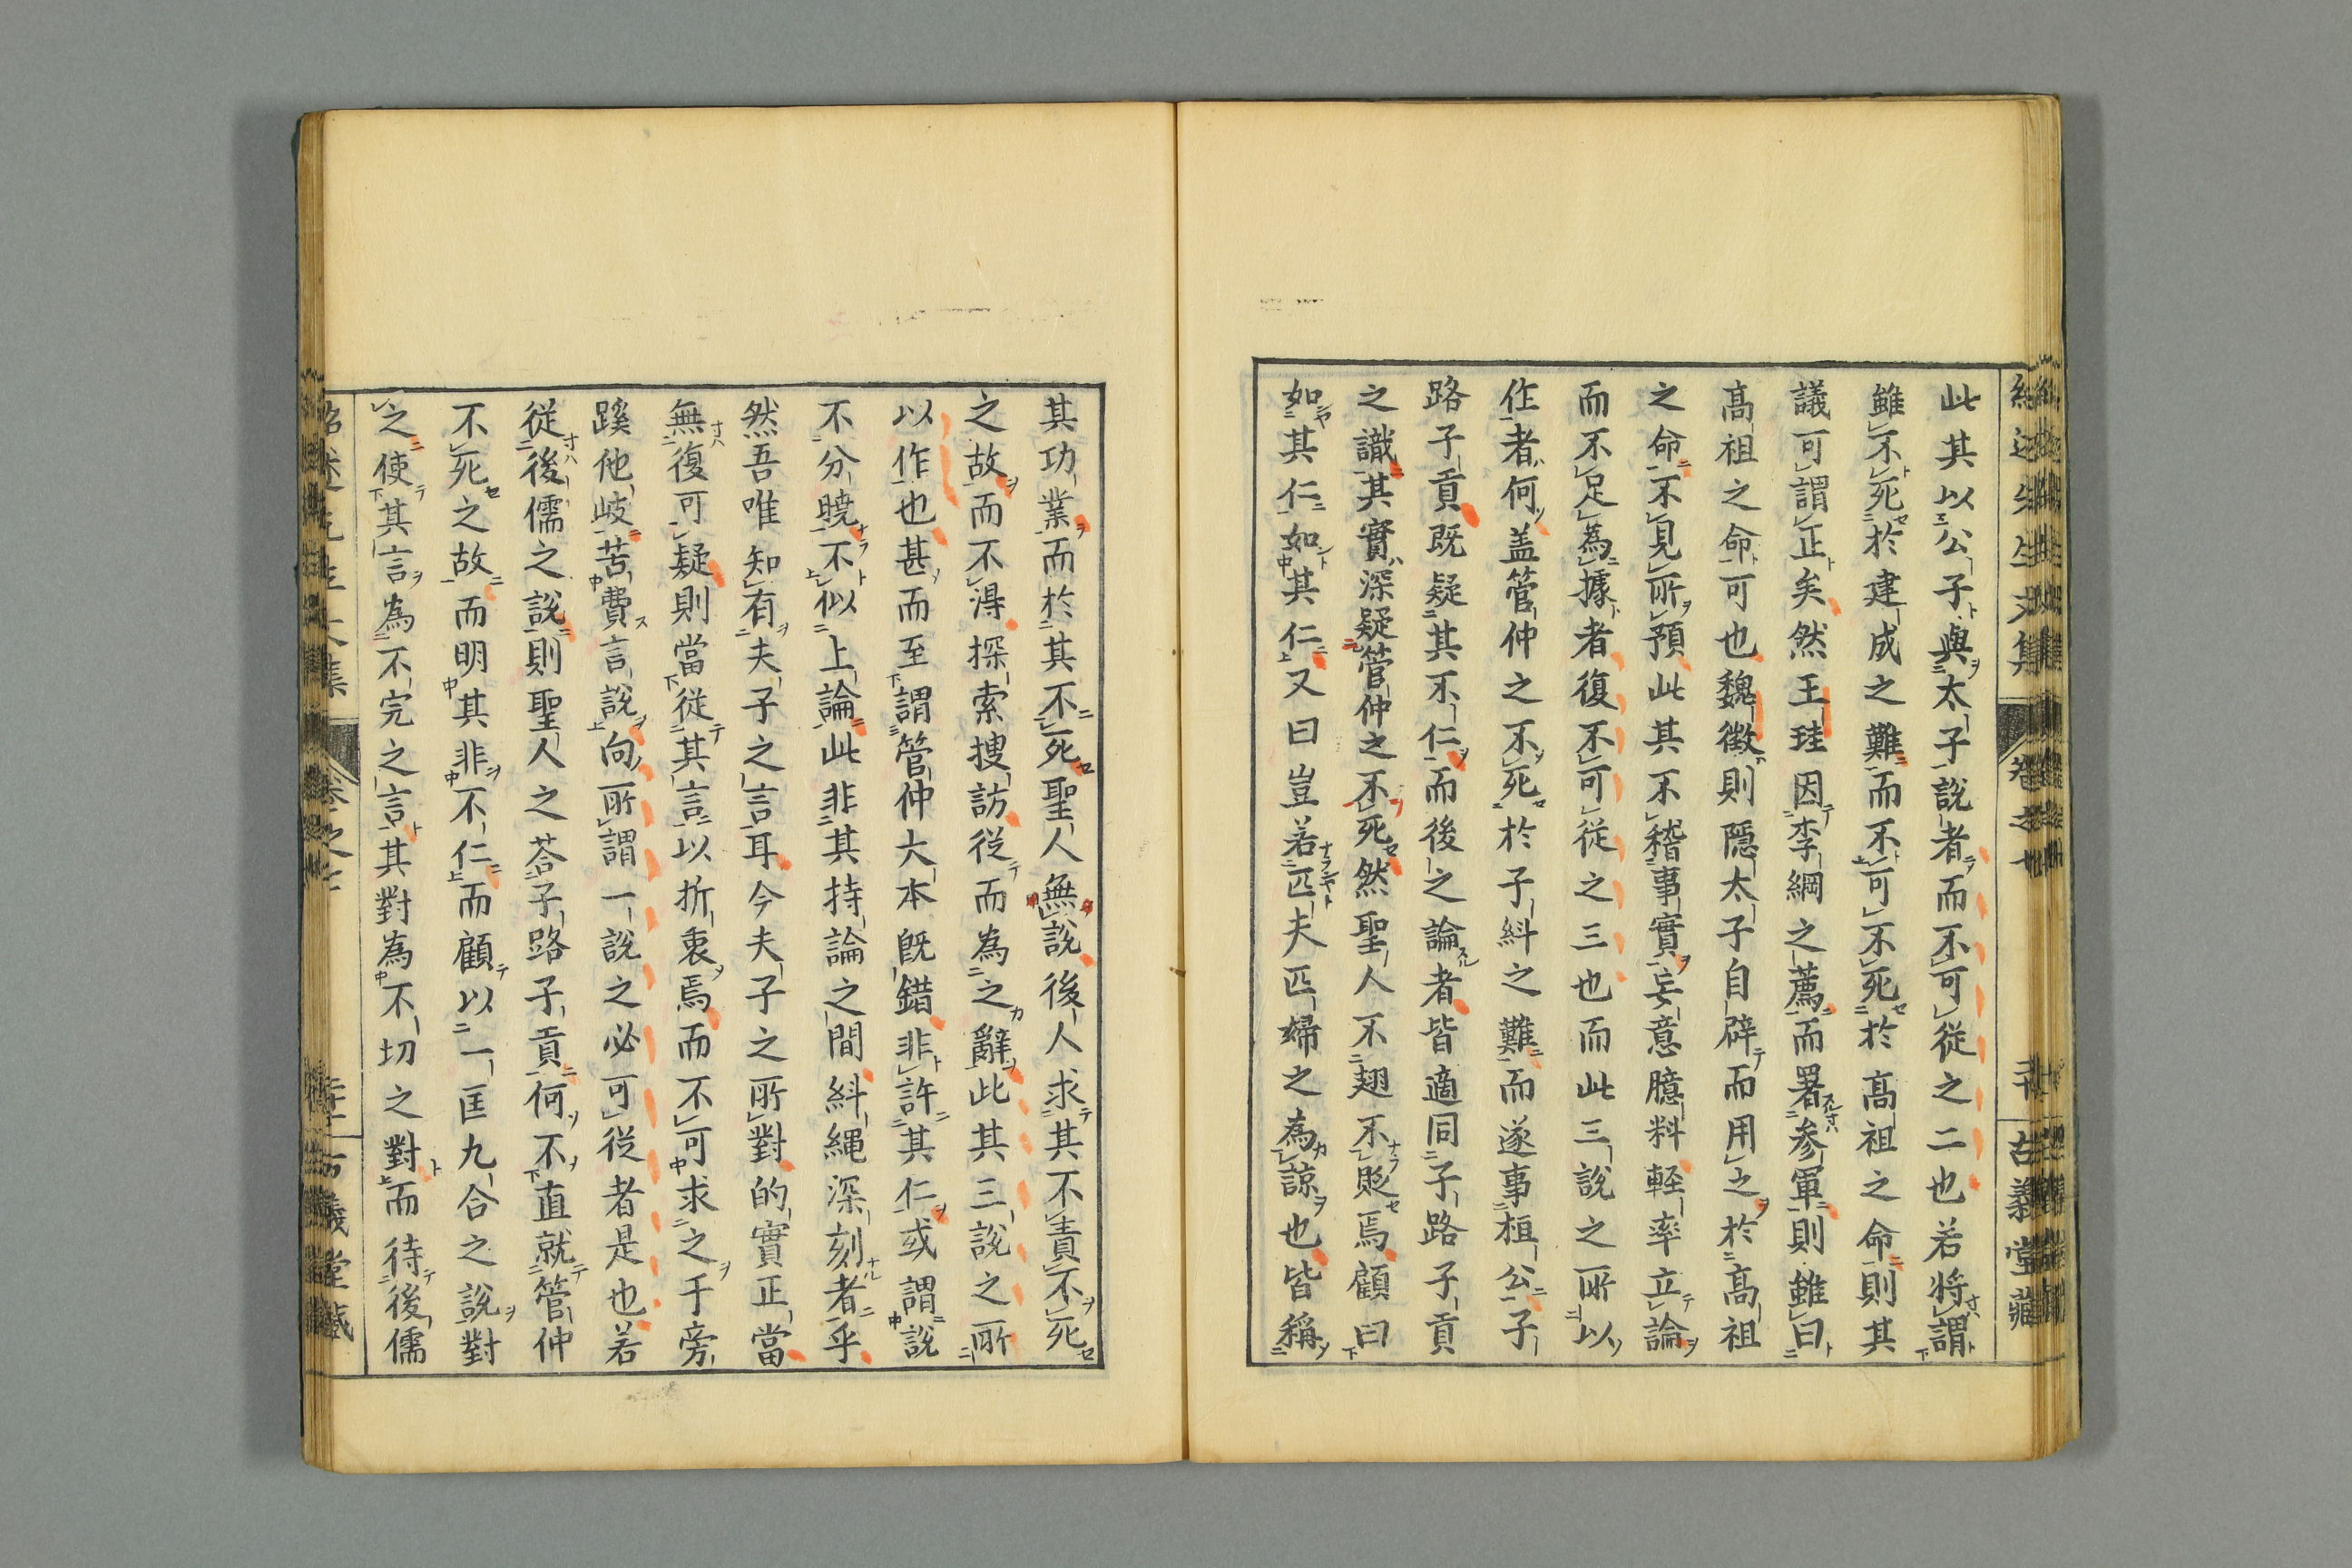 此其以公子與太子說者而不可從之二也若將謂
雖不死於建成之難而不可不死於高祖之命則其
議可謂正矣然王珪因李綱之薦而署參軍則雖曰
高祖之命可也魏徵則隱太子自辟而用之於高祖
之命不見所預此其不稽事實妄意臆料輕率立論
而不足為據者復不可從之三也而此三說之所以
作者何盖管仲之不死於子糾之難而遂事桓公子
路子貢既疑其不仁而後之論者皆適同子路子貢
之識其實深疑管仲之不死然聖人不翅不貶焉顧曰
如其仁如其仁又曰豈若匹夫匹婦之為諒也皆稱
其功業而於其不死聖人無說後人求其不責不死
之故而不得探索搜訪從而為之辭此其三說之所
以作也甚而至謂管仲大本既錯非許其仁或謂說
不分曉不似上論此非其持論之間糾繩深刻者乎
然吾唯知有夫子之言耳今夫子之所對的實正當
無復可疑則當從其言以折衷焉而不可求之于旁
蹊他岐苦費言說向所謂一說之必可從者是也若
從後儒之說則聖人之荅子路子貢何不直就管仲
不死之故而明其非不仁而顧以一匡九合之說對
之使其言為不完之言其對為不切之對而待後儒
古義堂藏